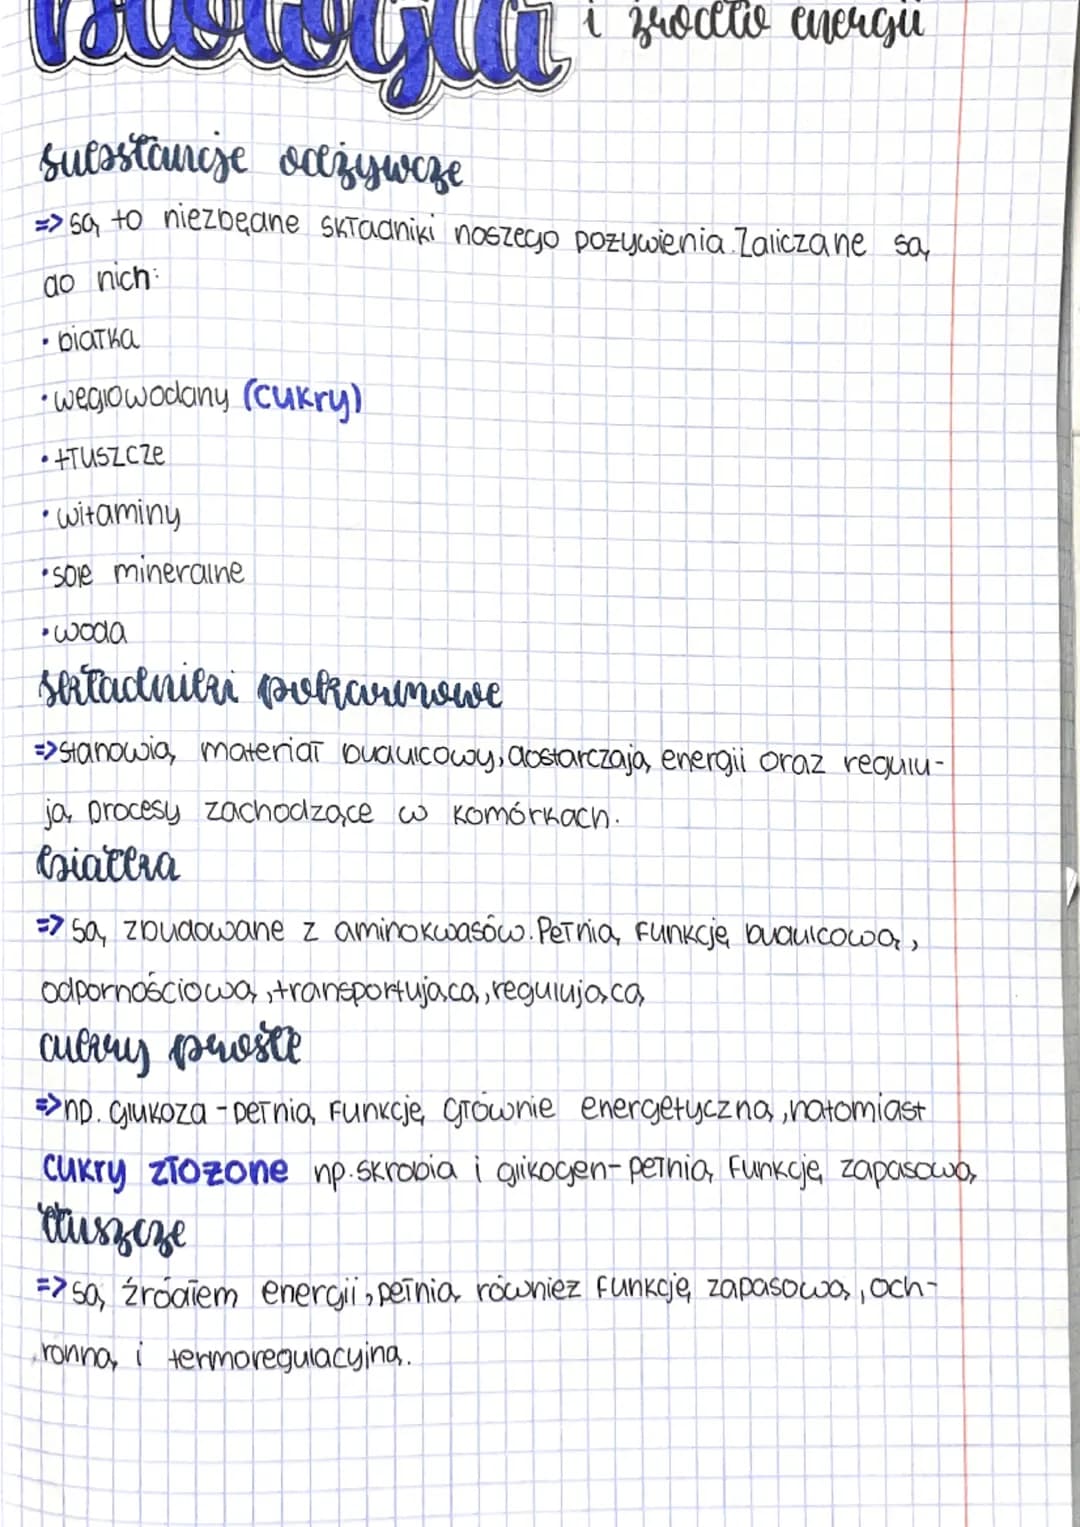 Biologia i źródło energii
substancje odżywcze
=> są to niezbędne składniki naszego pożywienia. Zaliczane są
do nich:
• białka
• węglowodany (cukry)
• tłuszcze
• witaminy
• sole mineralne
• woda
składniki pokarmowe
=> stanowią materiał budulcowy, dostarczają energii oraz regulu-
ją procesy zachodzące w komórkach.
białka
=> są zbudowane z aminokwasów. Pełnią funkcję budulcową,
odpornościową, transportującą, regulującą
cukry proste
=> np. glukoza - pełnią funkcję głównie energetyczną, natomiast
cukry złożone np. skrobia i glikogen - pełnią funkcję zapasową
tłuszcze
=> są źródłem energii, pełnią również funkcję zapasową, och-
ronną i termoregulacyjną.